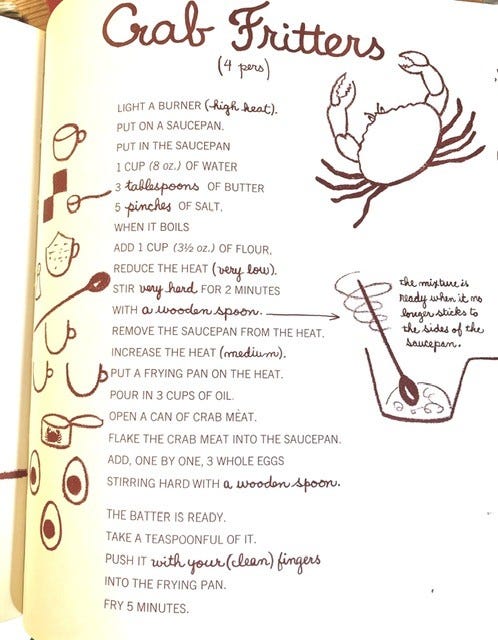 Crab Fritters
(4 pers)
LIGHT A BURNER (high heat).
PUT ON A SAUCEPAN.
PUT IN THE SAUCEPAN
1 CUP (8 oz.) OF WATER
3 tablespoons OF BUTTER
5 pinches OF SALT,
WHEN IT BOILS
ADD 1 CUP (3½ oz.) OF FLOUR,
REDUCE THE HEAT (very low).
STIR very hard FOR 2 MINUTES
WITH a wooden spoon.
the mixture is
ready when it no
longer sticks to
the sides of the
saucepan.
REMOVE THE SAUCEPAN FROM THE HEAT.
INCREASE THE HEAT (medium).
PUT A FRYING PAN ON THE HEAT.
POUR IN 3 CUPS OF OIL.
OPEN A CAN OF CRAB MEAT.
FLAKE THE CRAB MEAT INTO THE SAUCEPAN.
ADD, ONE BY ONE, 3 WHOLE EGGS
STIRRING HARD WITH a wooden spoon.
THE BATTER IS READY.
TAKE A TEASPOONFUL OF IT.
PUSH IT with your (clean) fingers
INTO THE FRYING PAN.
FRY 5 MINUTES.